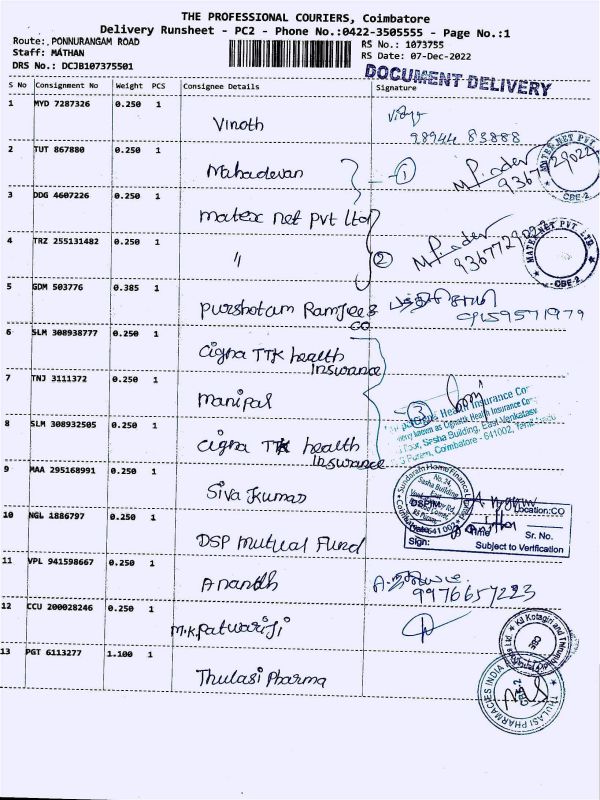 THE PROFESSIONAL COURIERS, Coimbatore
Delivery Runsheet - PC2 - Phone No.:0422-3505555 - Page No.:1
Route: PONNURANGAM ROAD
Staff: MATHAN
DRS No.: DCJB107375501
RS No.: 1073755
RS Date: 07-Dec-2022
DOCUMENT DELIVERY
S No Consignment No Weight PCS Consignee Details Signature
1 MYD 7287326 0.250 1 Vinoth
98944 83888
2 TUT 867880 0.250 1 Mahadevan 1
3 DDG 4607226 0.250 1 matex net pvt ltd
4 TRZ 255131482 0.250 1 " 2
9367729022
MATEX NET PVT. LTD.
CBE-2
5 GDM 503776 0.385 1 Purshotam Ramjee &
CO
9159571979
6 SLM 308938777 0.250 1 Cigna TTK health
Insurance
7 TNJ 3111372 0.250 1 Manipal 3
Health Insurance
known as CignaTTK Health Insurance
Floor, Sesha Building, East Venkatasw
Puram, Coimbatore - 641002,
8 SLM 308932505 0.250 1 Cigna TTK health
Insurance
9 MAA 295168991 0.250 1 Siva Kumar
Sundaram Home Finance
No. 24,
Sesha Building
10 NGL 1886797 0.250 1 DSP Mutual Fund
DSPIM Location:CO
Time Sr. No.
Sign: Subject to Verification
11 VPL 941598667 0.250 1 Ananth
9976657223
12 CCU 200028246 0.250 1 M.K. Patwariji
13 PGT 6113277 1.100 1 Thulasi Pharma
THULASI PHARMACIES INDIA